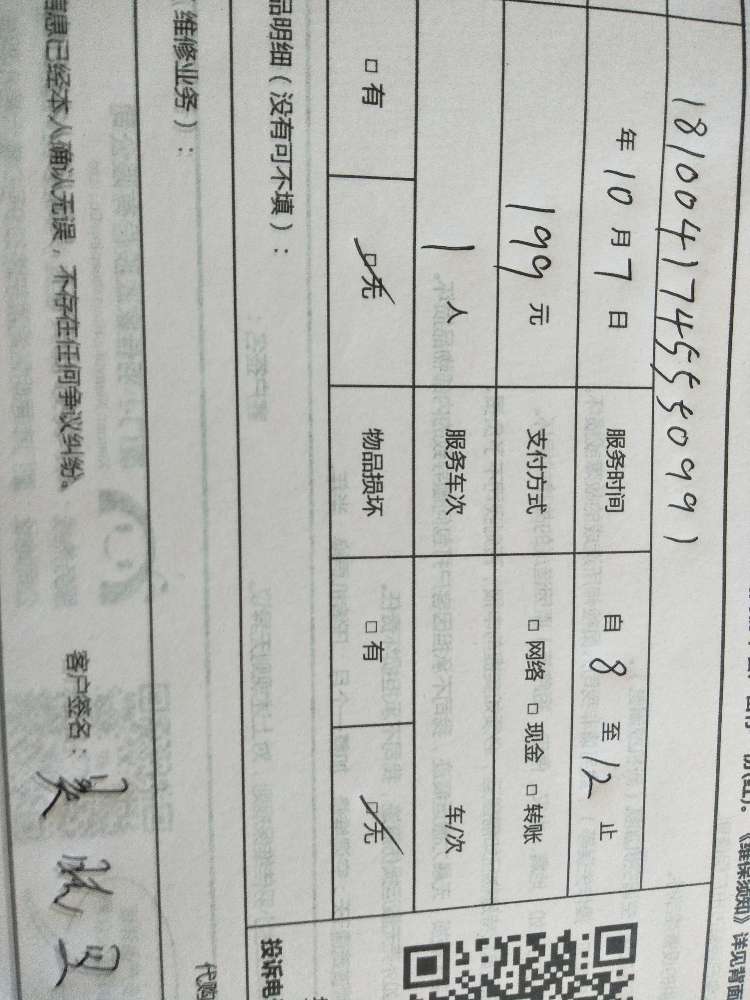 《维保须知》详见背面
181004174555099)
年 10 月 7 日 服务时间 自 8 至 12 止
199 元 支付方式 □ 网络 □ 现金 □ 转账
1 人 服务车次 车/次
□ 有 □ 无 物品损坏 □ 有 □ 无
品明细（没有可不填）：
投诉电
（维修业务）：
代购
信息已经本人确认无误，不存在任何争议纠纷。 客户签名：吴